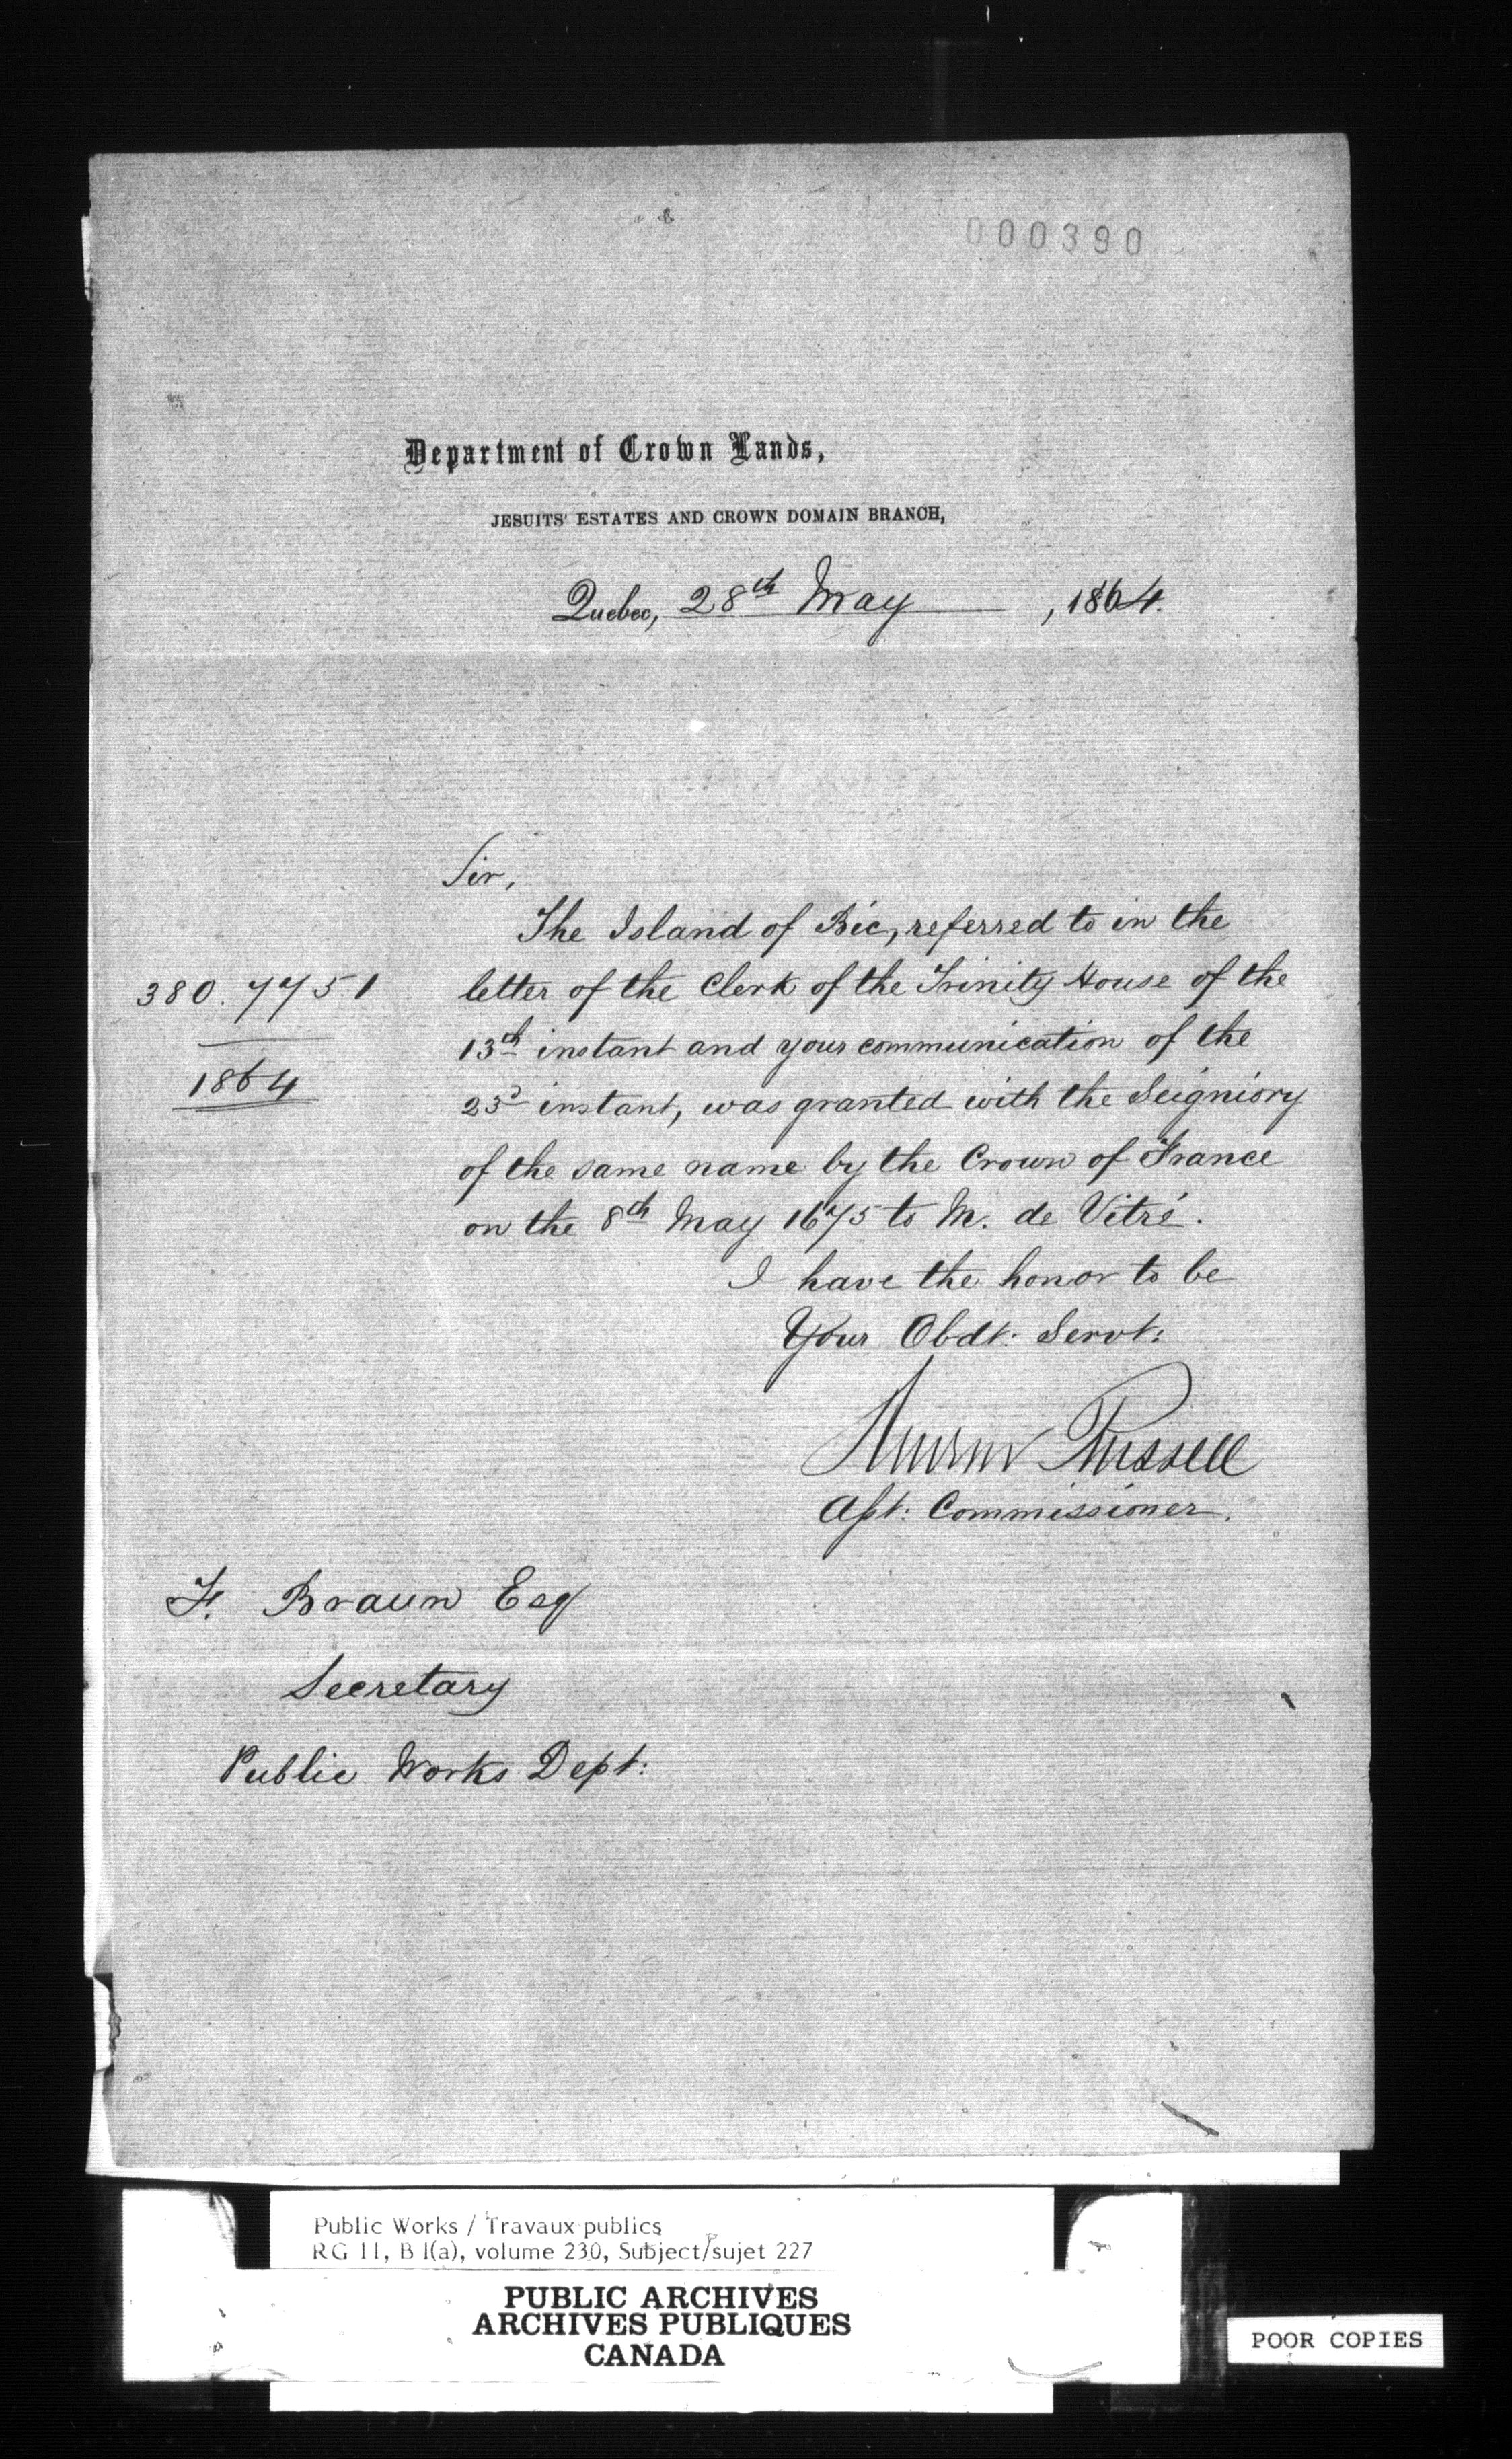 000390
Department of Crown Lands,
JESUITS' ESTATES AND CROWN DOMAIN BRANCH,
Quebec, 28th May, 1864.
Sir,
The Island of Bic, referred to in the
380. 7751
letter of the Clerk of the Trinity House of the
13th instant and your communication of the
1864
23d instant, was granted with the Seigniory
of the same name by the Crown of France
on the 8th May 1675 to M. de Vitré.
I have the honor to be
Your Obdt: Servt:
Andrew Russell
Asst: Commissioner.
F. Braun Esq
Secretary
Public Works Dept:
Public Works / Travaux publics
RG 11, B 1(a), volume 230, Subject/sujet 227
PUBLIC ARCHIVES
ARCHIVES PUBLIQUES
CANADA
POOR COPIES